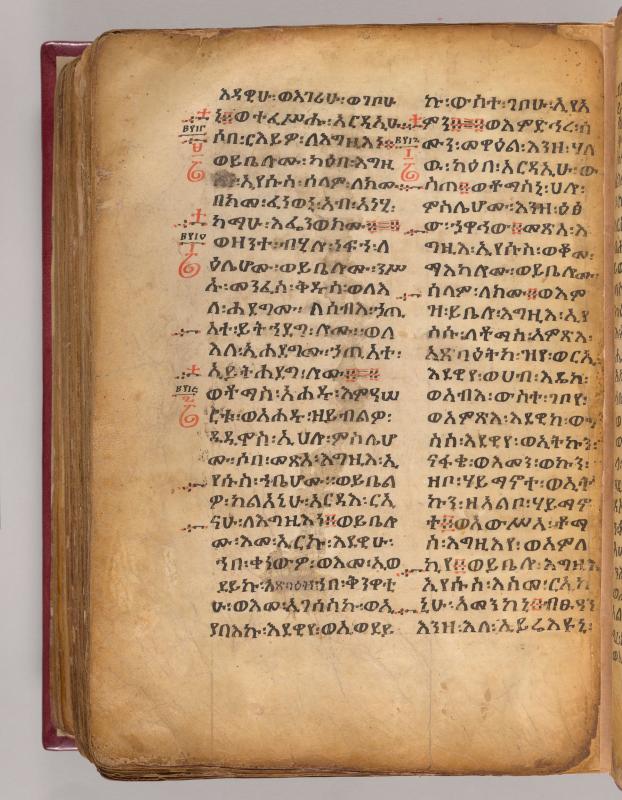 እዳዊሁ፡ወእገሪሁ፡ወገቦሁ
ኒ፡ወተፈሥሑ፡አርዳኢሁ፡
ሶበ፡ርእይዎ፡ለእግዚእነ፨
ወይቤሎሙ፡ካዕበ፡እግዚ
ኢየሱስ፡ሰላም፡ለክሙ፡
በከመ፡ፈነወኒ፡አብ፡አነሂ፡
ከማሁ፡እፌንወክሙ፨
ወዘንተ፡ብሂሎ፡ነፋኀ፡ላ
ዕሌሆሙ፡ወይቤሎሙ፡ንሥ
ኡ፡መንፈስ፡ቅዱስ፡ወለእ
ለ፡ሐደግሙ፡ ለሰብእ፡ኃጢ
አተ፡ይትኀደግ፡ሎሙ፡ወለ
እለ፡ኢሐደግሙ፡ኃጢአተ፡
ኢይትሐደግ፡ሎሙ፨
ወቶማስ፡አሐዱ፡እምዓሠ
ርቱ፡ወአሐዱ፡ዘይብልዎ፡
ዲዲሞስ፡ኢሀሎ፡ምስሌሆ
ሙ፡ሶበ፡መጽአ፡እግዚእ፡ኢ
የሱስ፡ኀቤሆሙ፡ወይቤል
ዎ፡ካልአኒሁ፡አርዳእ፡ርኢ
ናሁ፡ለእግዚእነ፨ወይቤሎ
ሙ፡እመ፡ኢርኩ፡እደዊሁ፡
ኀበ፡ቀነውዎ፡ወእመ፡ኢወ
ደይኩ፡እጻብዕየ፡ኀበ፡ቅንዋቲ
ሁ፡ወእመ፡ኢገሰስኩ፡ወኢ
ያባእኩ፡እደዊየ፡ወኢወደይ
ኩ፡ውስተ፡ገቦሁ፡ኢየአ
ምን፨ወእምድኅረ፡ሰ
ሙን፡መዋዕል፡እንዘ፡ሃለ
ዉ፡ካዕበ፡አርዳኢሁ፡ው
ስጠ፨ወቶማስኒ፡ሀሎ፡
ምስሌሆሙ፡እንዘ፡ዕፅ
ው፡ኆኅው፨መጽአ፡እ
ግዚእ፡ኢየሱስ፡ወቆመ፡
ማእከሎሙ፡ወይቤሎሙ፡
ሰላም፡ለክሙ፨ወእም
ዝ፡ይቤሎ፡እግዚእ፡ኢየ
ሱስ፡ለቶማስ፡አምጽእ፡
አጻባዕተከ፡ዝየ፡ወርኢ
እደዊየ፡ወሀብ፡እዴከ፡
ወአብእ፡ውስተ፡ገቦየ፡
ወአምጽእ፡እደዊከ፡ወገ
ስስ፡እደዊየ፡ወኢትኩን፡
ናፋቄ፡ወእመን፡ወኩን፡
ዘቦ፡ሃይማኖተ፡ወኢት
ኩን፡ዘአልቦ፡ሃይማኖ
ተ፨ወአውሥአ፡ቶማ
ስ፡እግዚእየ፡ወአምላ
ኪየ፨ወይቤሎ፡እግዚእ
ኢየሱስ፡እስመ፡ርኢከ
ኒሁ፡አመንከኒ፨ብፁዓን
እንዘ፡እለ፡ኢይሬእዩኒ፡